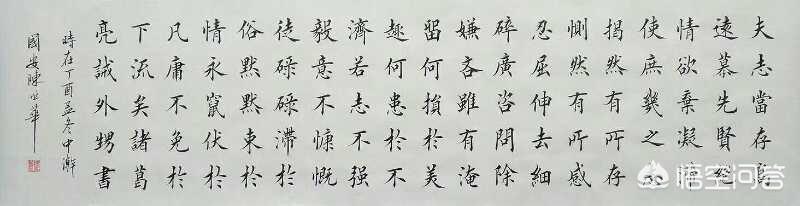 夫志當存高
遠慕先賢絕
情欲棄凝滯
使庶幾之志
揭然有所存
惻然有所感
忍屈伸去細
碎廣咨問除
嫌吝雖有淹
留何損於美
趣何患於不
濟若志不强
毅意不慷慨
徒碌碌滯於
俗默默束於
情永竄伏於
凡庸不免於
下流矣諸葛
亮誡外甥書
時在丁酉孟冬中澣
國安陳世華
悟空问答